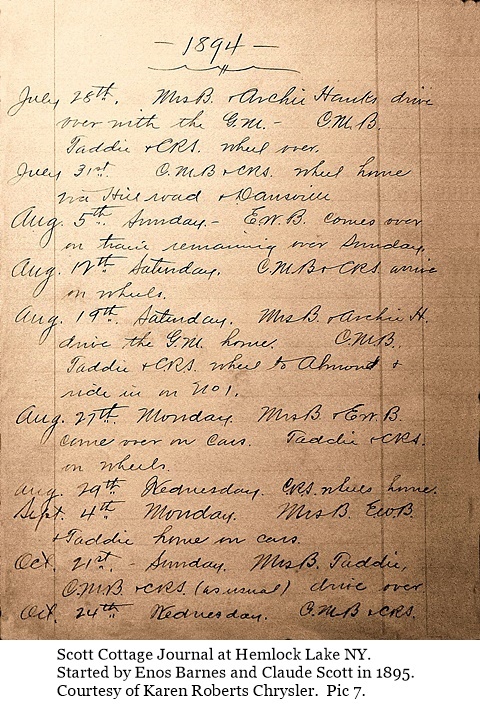 - 1894 -
July 28th. Mrs B. & Archie Hanks drive
over with the G.M. - C.M.B.
Taddie & CRS. wheel over.
July 31st. C.M.B & CRS. wheel home
via Hill road & Dansville
Aug. 5th Sunday. - E.W.B. comes over
on train remaining over Sunday.
Aug. 12th Saturday. C.M.B & CRS. arrive
on wheels.
Aug. 19th. Saturday. Mrs B. & Archie H.
drive the G.M. home. C.M.B.
Taddie & CRS. wheel to Almond &
ride in on No 1.
Aug. 27th Monday. Mrs B & E.W.B.
come over on cars. Taddie & CRS.
on wheels.
Aug. 29th Wednesday. CRS. wheels home.
Sept. 4th Monday. Mrs B. E.W.B.
& Taddie home on cars.
Oct. 21st. - Sunday. Mrs B. Taddie,
C.M.B. & CRS. (as usual) drive over
Oct. 24th Wednesday. C.M.B & CRS.
Scott Cottage Journal at Hemlock Lake NY.
Started by Enos Barnes and Claude Scott in 1895.
Courtesy of Karen Roberts Chrysler. Pic 7.